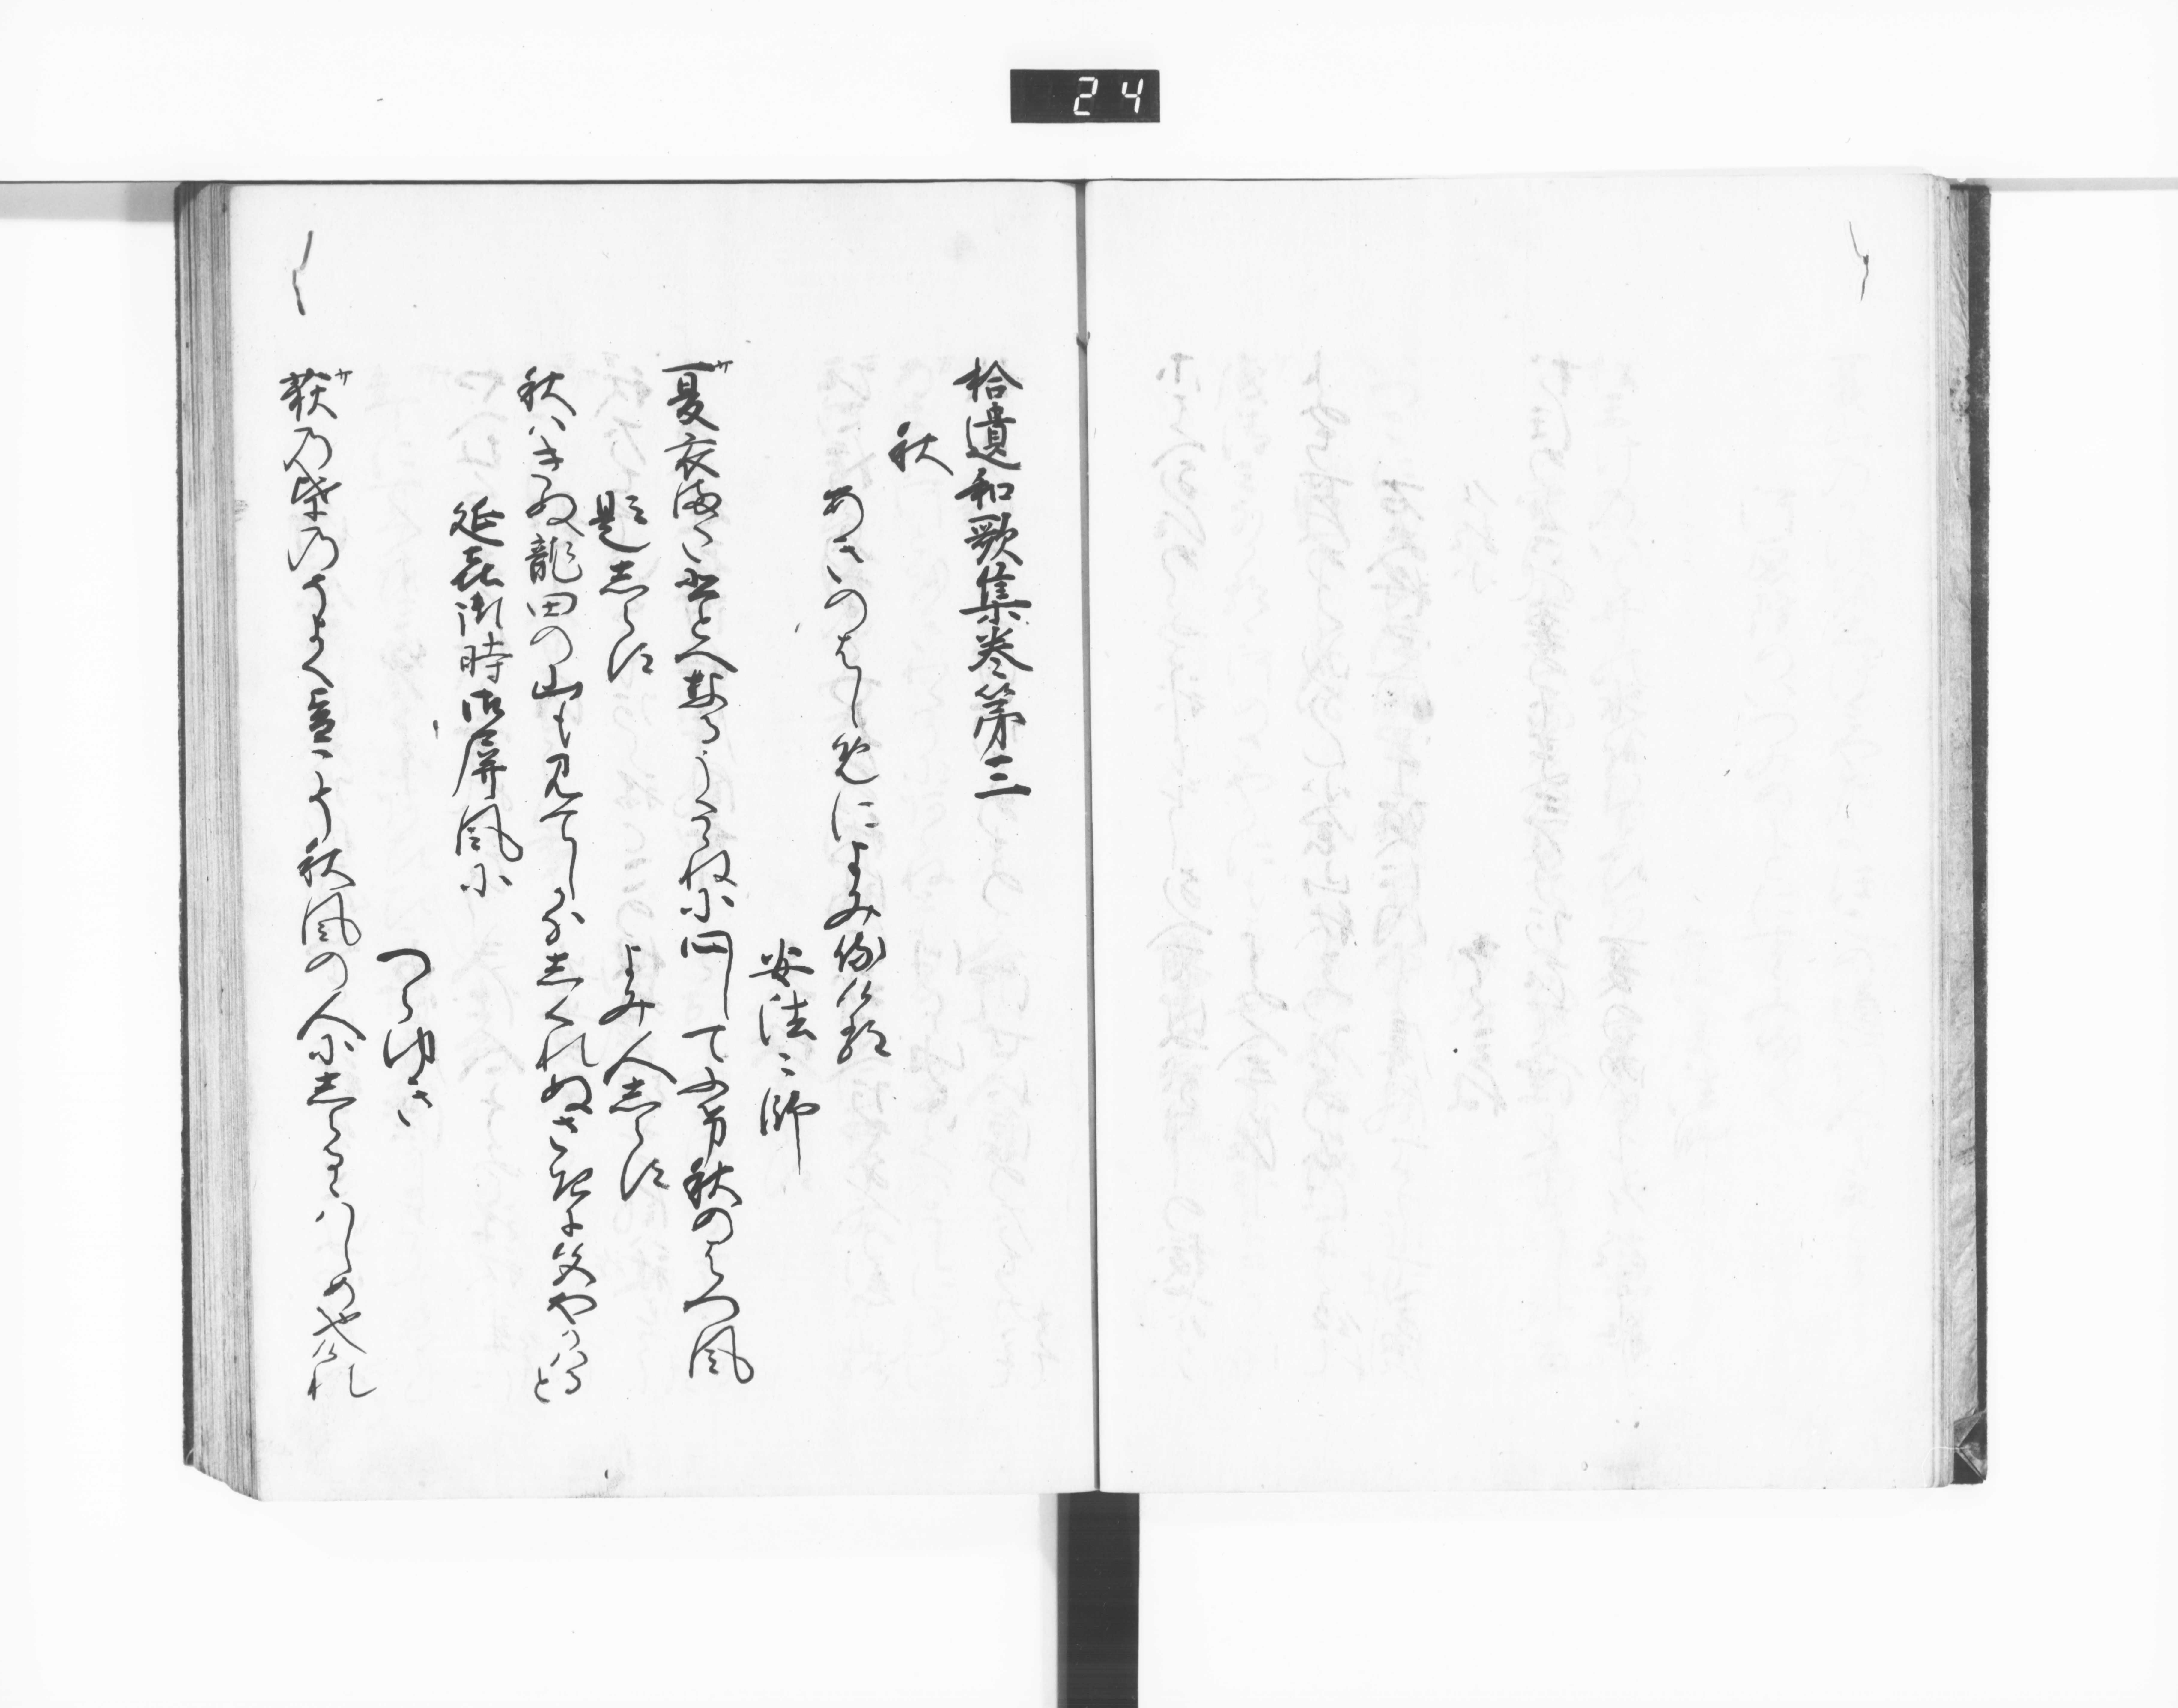 24
拾遺和歌集巻第三
秋
あきのはしめによみ侍ける
安法々師
夏衣またひとへなるうたゝねに心してふけ秋のはつ風
題しらす
よみ人しらす
秋はきぬ龍田の山も見てしかなしくれぬさきに色やかはると
延喜御時御屏風に
つらゆき
荻の葉のそよくをとこそ秋風の人にしらるゝはしめなりけれ